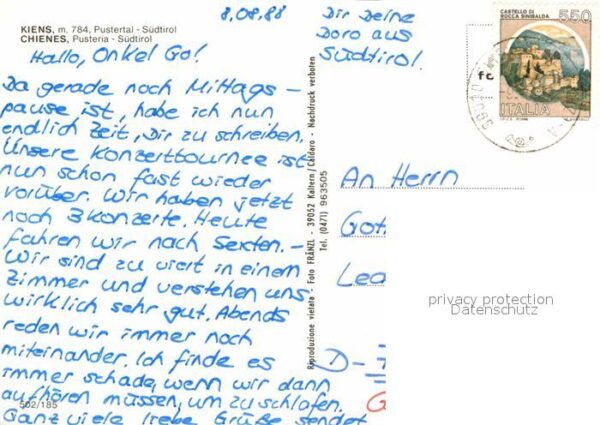 KIENS, m. 784, Pustertal - Südtirol
CHIENES, Pusteria - Südtirol
8.08.88
Hallo, Onkel Go!
Da gerade noch Mittags -
pause ist, habe ich nun
endlich Zeit, Dir zu schreiben.
Unsere Konzerttournee ist
nun schon fast wieder
vorüber. Wir haben jetzt
noch 3 Konzerte. Heute
fahren wir nach Sexten. -
Wir sind zu viert in einem
Zimmer und verstehen uns
wirklich sehr gut. Abends
reden wir immer noch
miteinander. Ich finde es
immer schade, wenn wir dann
aufhören müssen, um zu schlafen.
Ganz viele liebe Grüße sendet
Dir Deine
Doro aus
Südtirol.
502/185
Reproduzione vietata - Foto FRÄNZL - 39052 Kaltern/Caldaro - Nachdruck verboten
Tel. (0471) 963505
CASTELLO DI
ROCCA SINIBALDA
550
ITALIA
An Herrn
Got
Lea
D-
privacy protection
Datenschutz